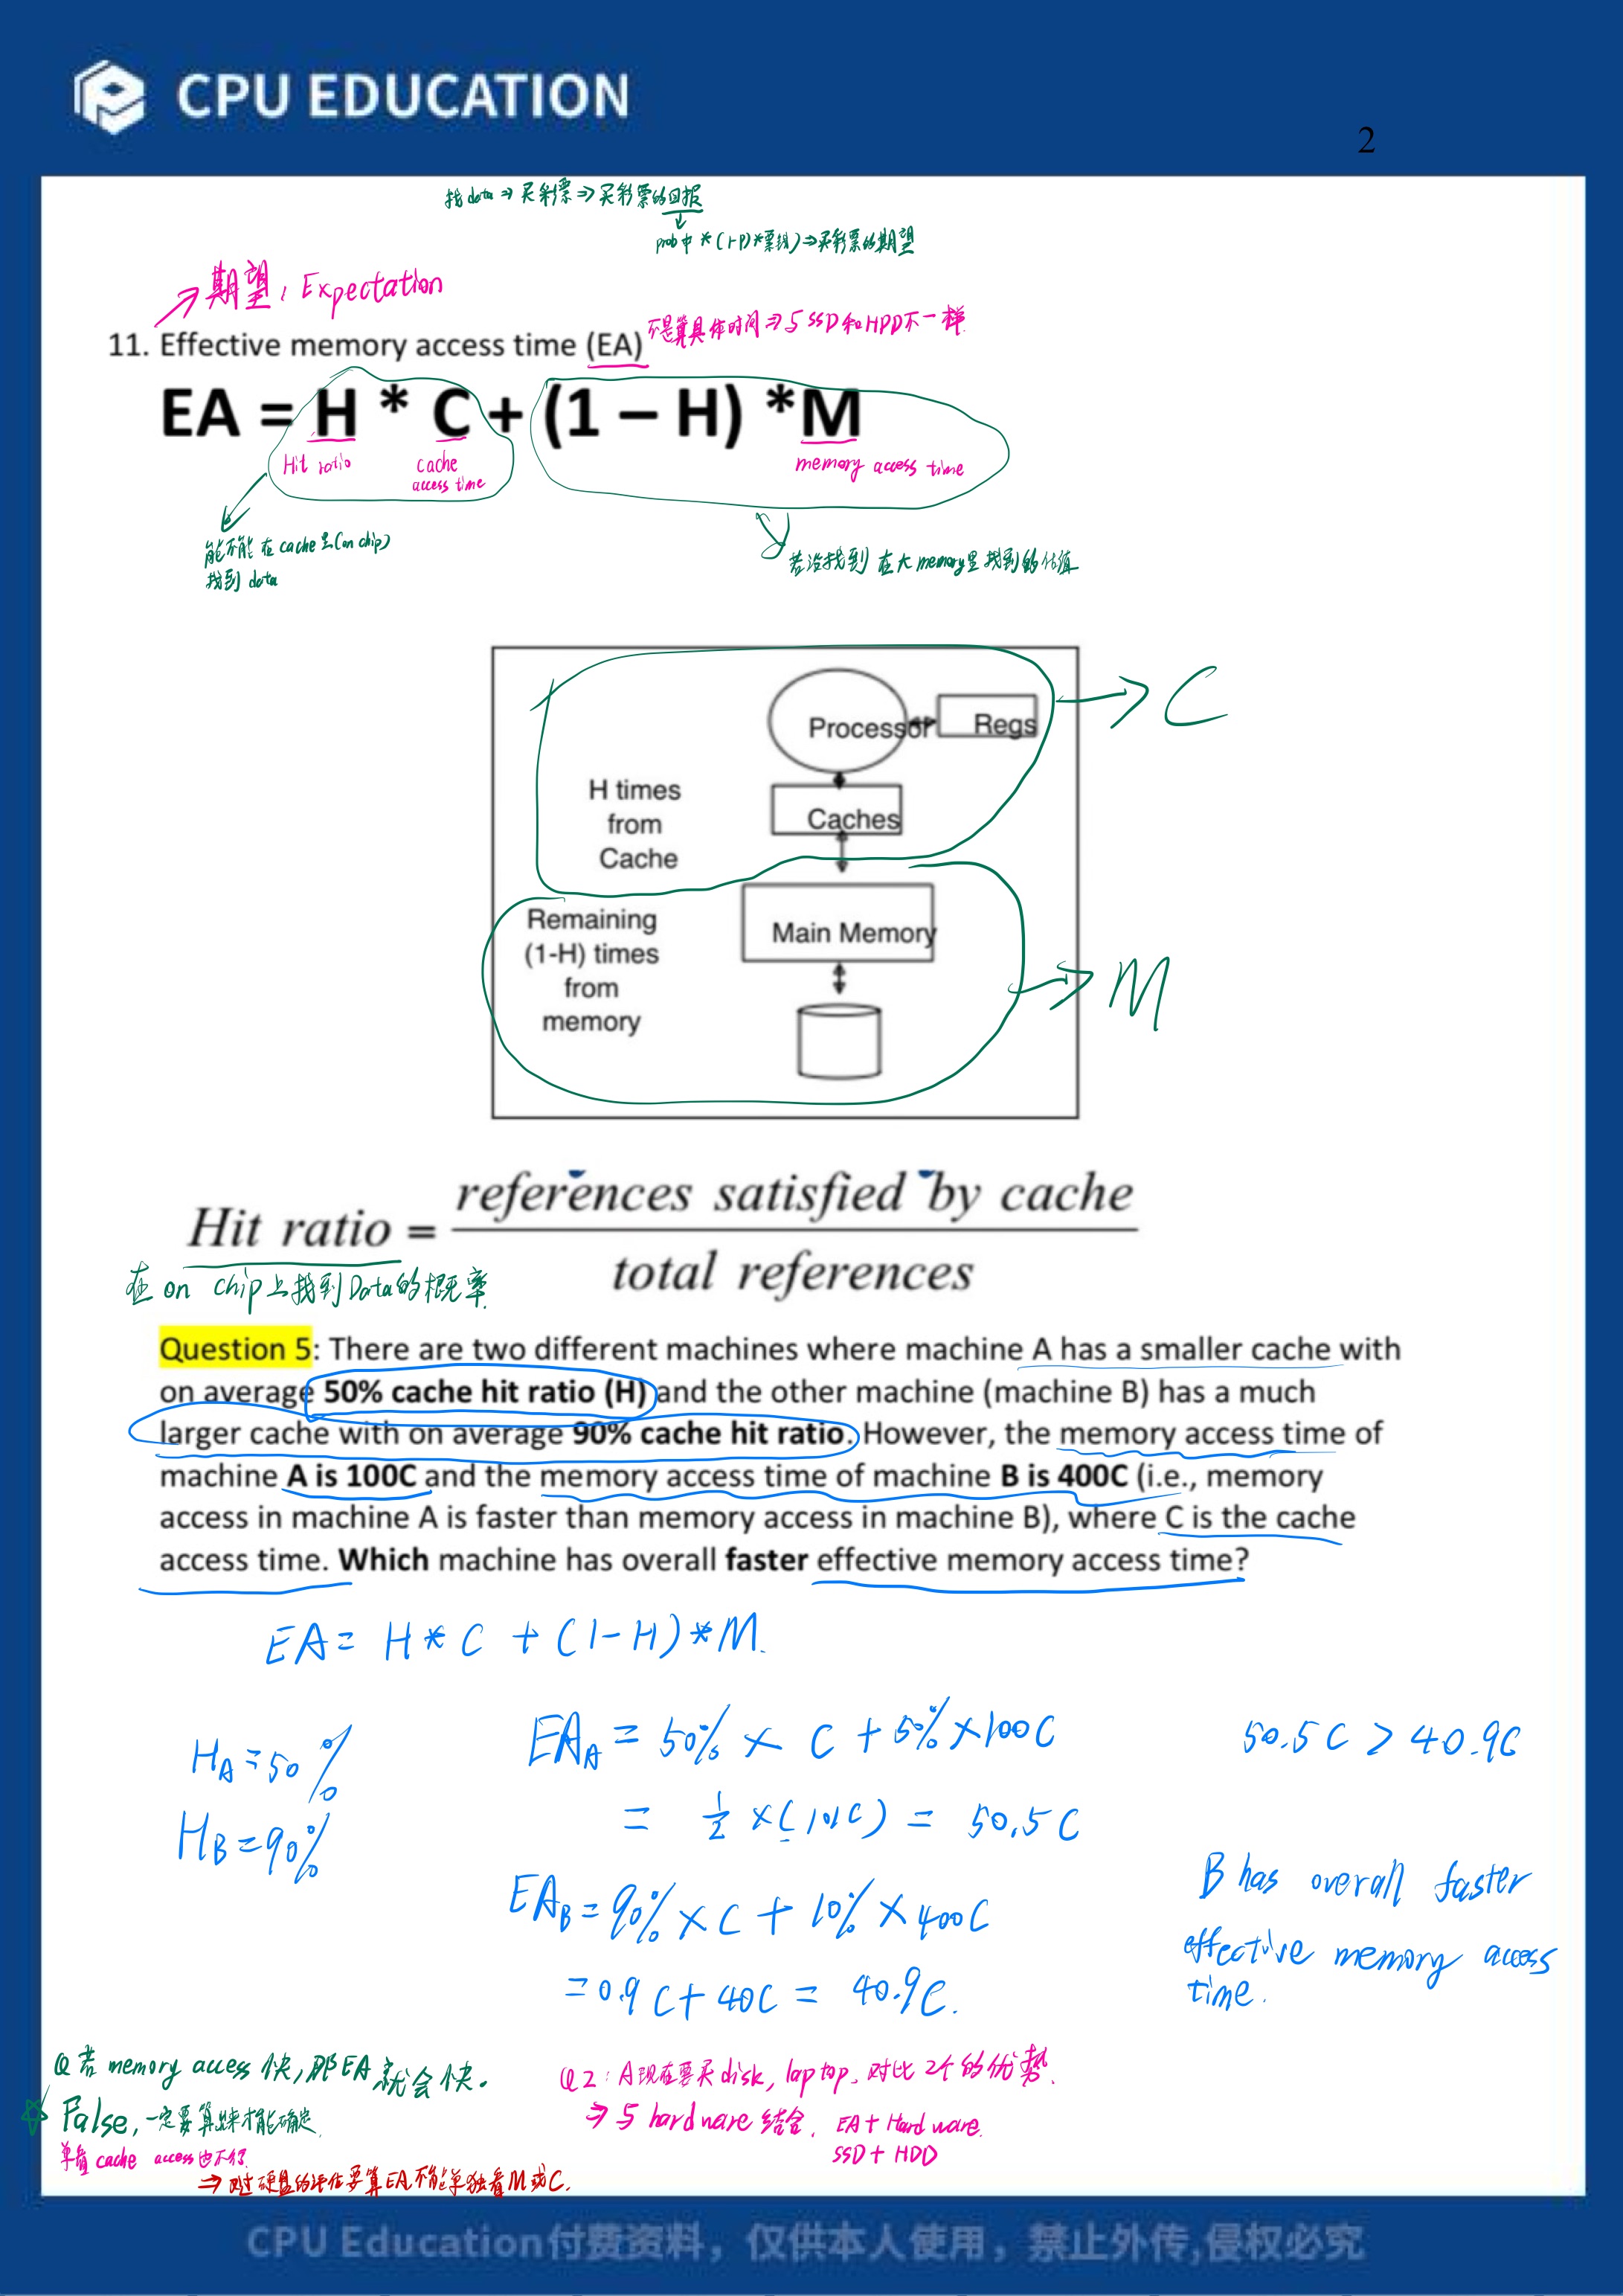 CPU EDUCATION
2
找data → 买彩票 → 买彩票的回报
prob中 * (1-P)*票钱) → 买彩票的期望
期望, Expectation
不是算具体时间 → 与SSD和HDD不一样
11. Effective memory access time (EA)
EA = H * C + (1 – H) *M
Hit ratio
cache
access time
memory access time
能不能在cache里(on chip)
找到 data
若没找到 在大memory里找到的估值
Processor
Regs
C
H times
from
Cache
Caches
Remaining
(1-H) times
from
memory
Main Memory
M
Hit ratio = references satisfied by cache
total references
在 on chip上找到Data的概率
Question 5: There are two different machines where machine A has a smaller cache with
on average 50% cache hit ratio (H) and the other machine (machine B) has a much
larger cache with on average 90% cache hit ratio. However, the memory access time of
machine A is 100C and the memory access time of machine B is 400C (i.e., memory
access in machine A is faster than memory access in machine B), where C is the cache
access time. Which machine has overall faster effective memory access time?
EA = H * C + (1-H) * M.
H_A = 50%
H_B = 90%
EA_A = 50% × C + 50% × 100C
= 1/2 × (101C) = 50.5C
EA_B = 90% × C + 10% × 400C
= 0.9C + 40C = 40.9C.
50.5C > 40.9C
B has overall faster
effective memory access
time.
Q 若 memory access 快, 那EA就会快.
False, 一定要算出来才能确定
单看 cache access也不行
→ 对硬盘的评估要算EA不能单独看M或C.
Q2: A现在要买disk, laptop, 对比2个的优势.
→ 与 hardware 结合. EA + Hardware.
SSD + HDD
CPU Education付费资料，仅供本人使用，禁止外传,侵权必究